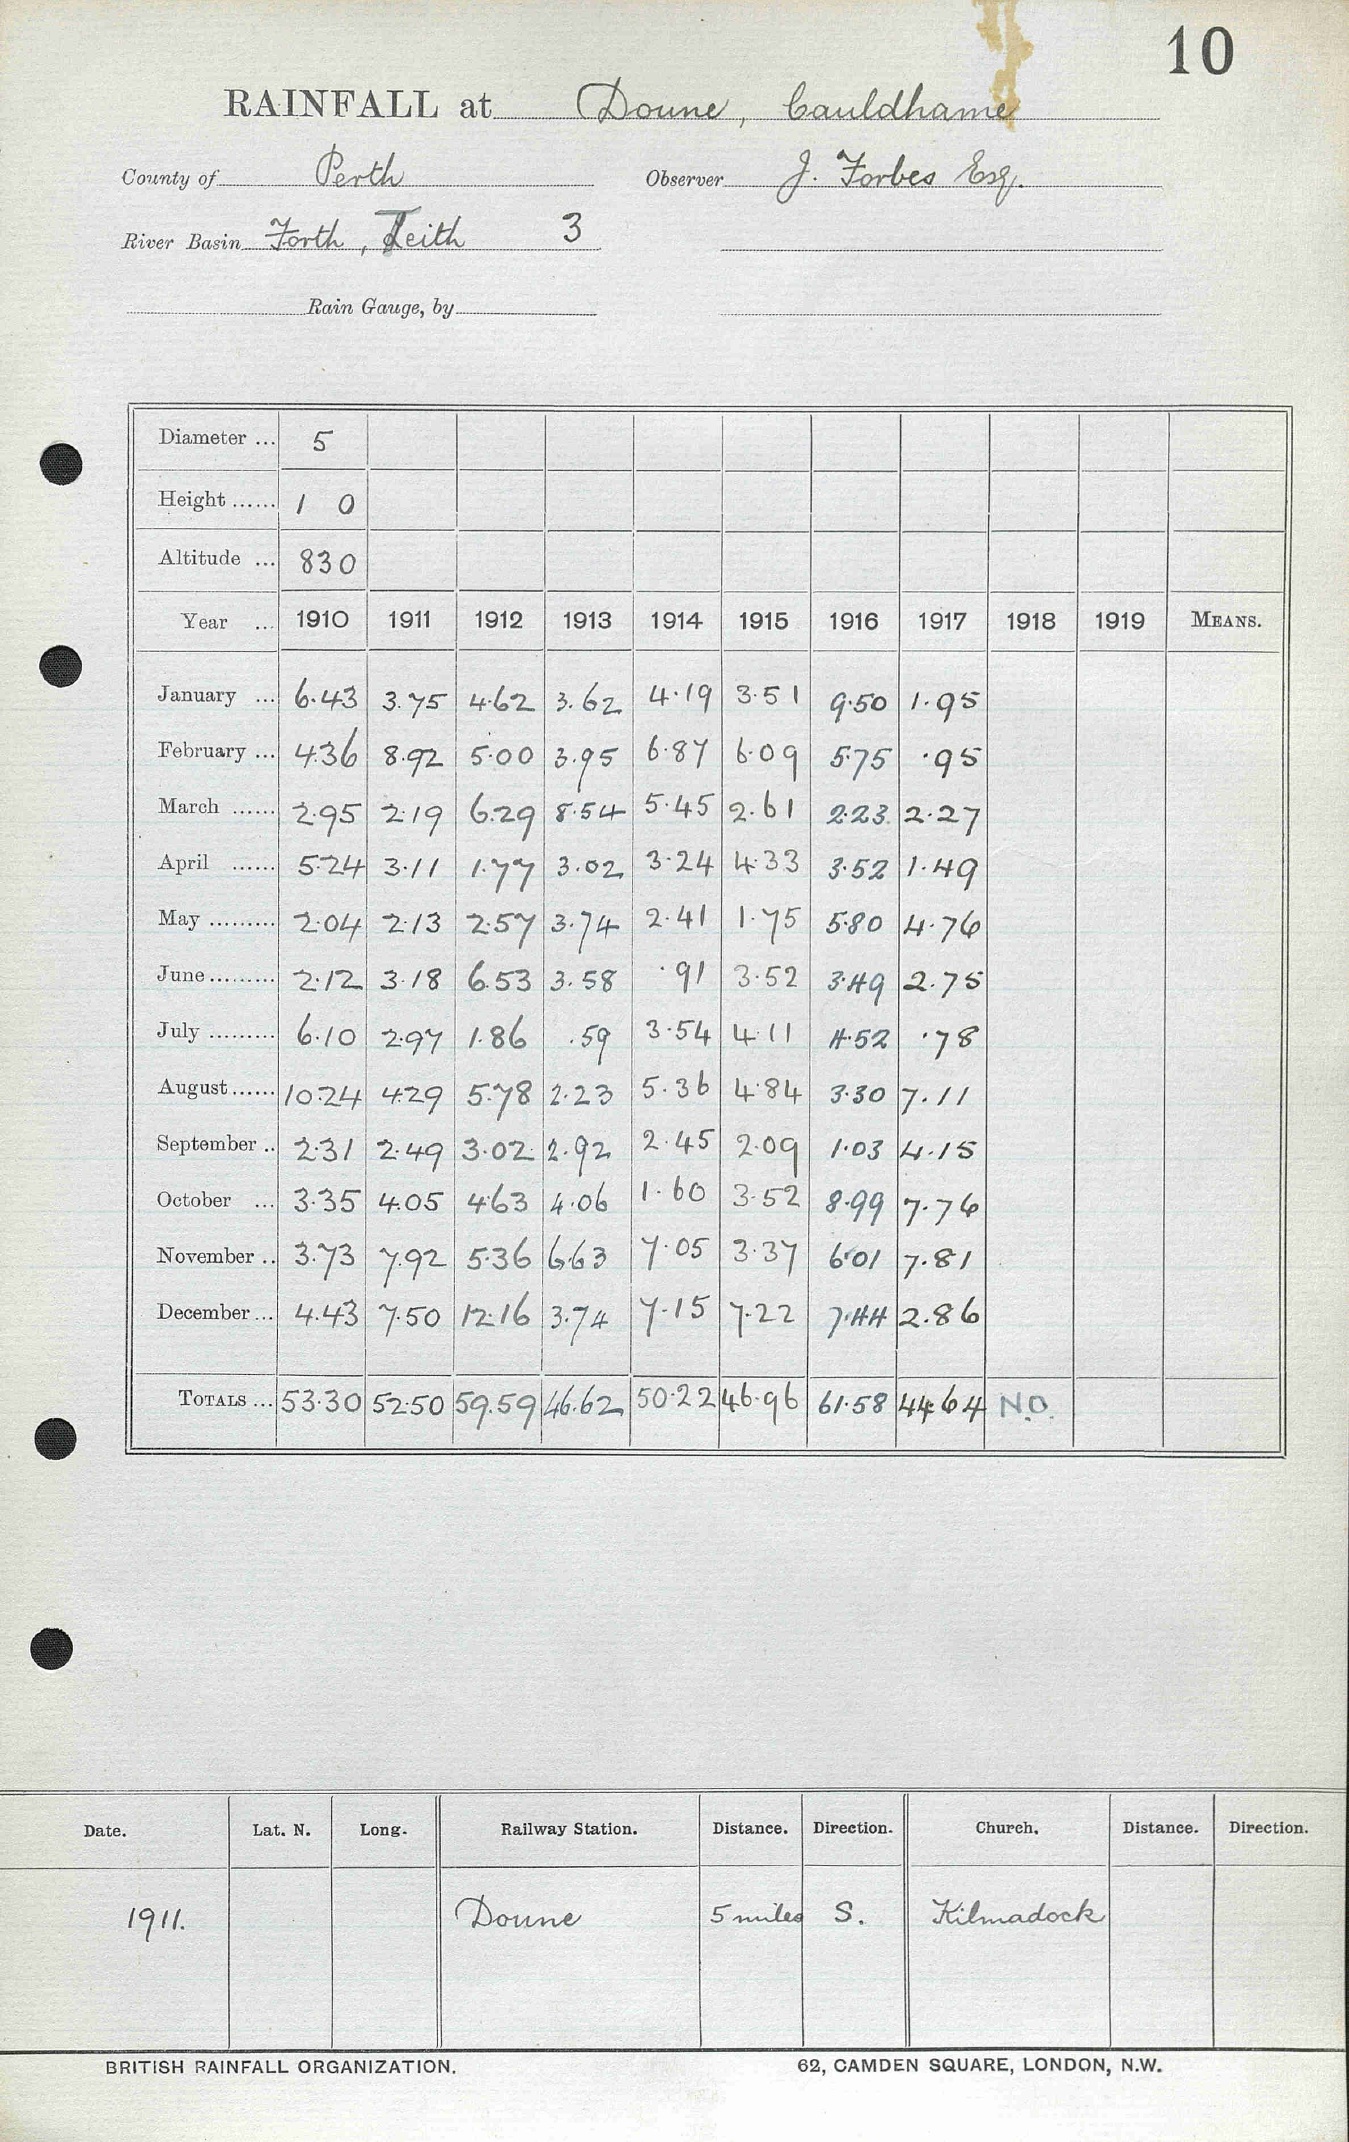 10
RAINFALL at Doune, Cauldhame
County of Perth Observer J. Forbes Esq.
River Basin Forth, Teith 3
Rain Gauge, by
Diameter ... 5
Height ...... 1 0
Altitude ... 830
Year ... 1910 1911 1912 1913 1914 1915 1916 1917 1918 1919 MEANS.
January ... 6.43 3.75 4.62 3.62 4.19 3.51 9.50 1.95
February ... 4.36 8.92 5.00 3.95 6.87 6.09 5.75 .95
March ...... 2.95 2.19 6.29 8.54 5.45 2.61 2.23 2.27
April ...... 5.24 3.11 1.77 3.02 3.24 4.33 3.52 1.49
May ......... 2.04 2.13 2.57 3.74 2.41 1.75 5.80 4.76
June ......... 2.12 3.18 6.53 3.58 .91 3.52 3.49 2.75
July ......... 6.10 2.97 1.86 .59 3.54 4.11 4.52 .78
August ...... 10.24 4.29 5.78 2.23 5.36 4.84 3.30 7.11
September .. 2.31 2.49 3.02 2.92 2.45 2.09 1.03 4.15
October ... 3.35 4.05 4.63 4.06 1.60 3.52 8.99 7.76
November .. 3.73 7.92 5.36 6.63 7.05 3.37 6.01 7.81
December ... 4.43 7.50 12.16 3.74 7.15 7.22 7.44 2.86
TOTALS ... 53.30 52.50 59.59 46.62 50.22 46.96 61.58 44.64 N.O.
Date. Lat. N. Long. Railway Station. Distance. Direction. Church. Distance. Direction.
1911. Doune 5 miles S. Kilmadock
BRITISH RAINFALL ORGANIZATION. 62, CAMDEN SQUARE, LONDON, N.W.